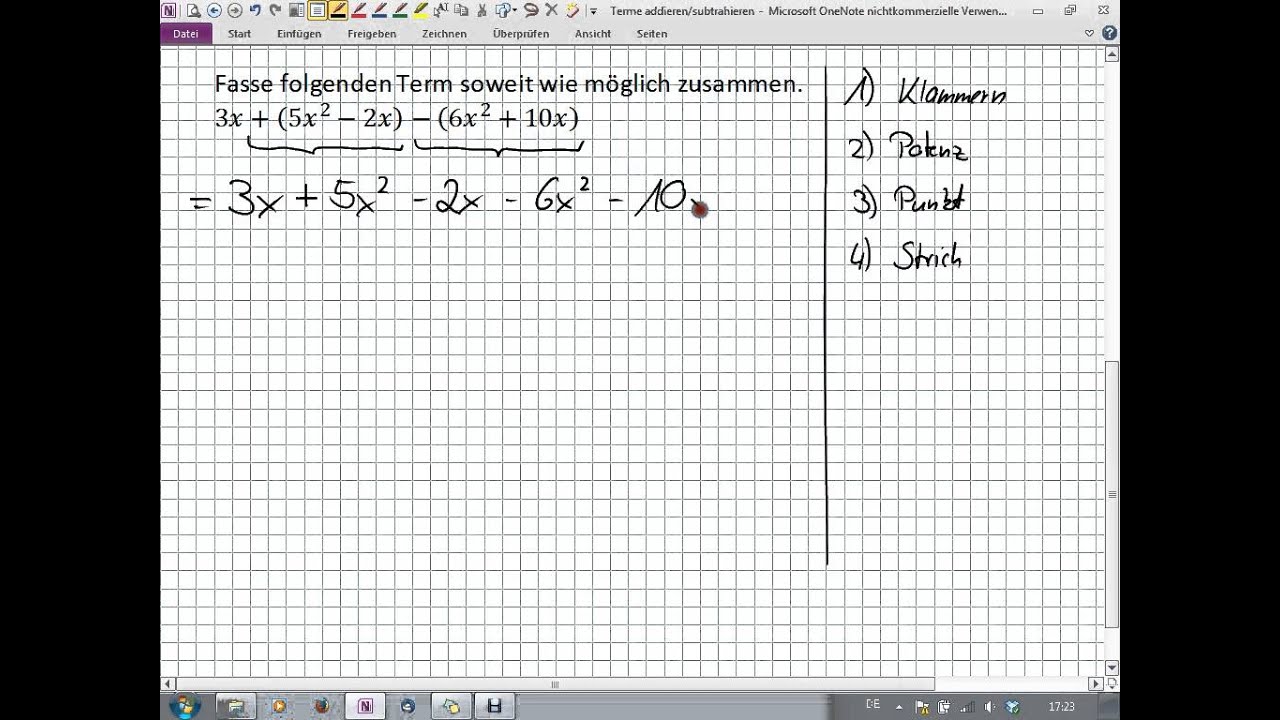 Terme addieren/subtrahieren - Microsoft OneNote (nichtkommerzielle Verwen...
Datei Start Einfügen Freigeben Zeichnen Überprüfen Ansicht Seiten
Fasse folgenden Term soweit wie möglich zusammen.
3x + (5x² − 2x) − (6x² + 10x)
= 3x + 5x² - 2x - 6x² - 10x
1) Klammern
2) Potenz
3) Punkt
4) Strich
DE 17:23